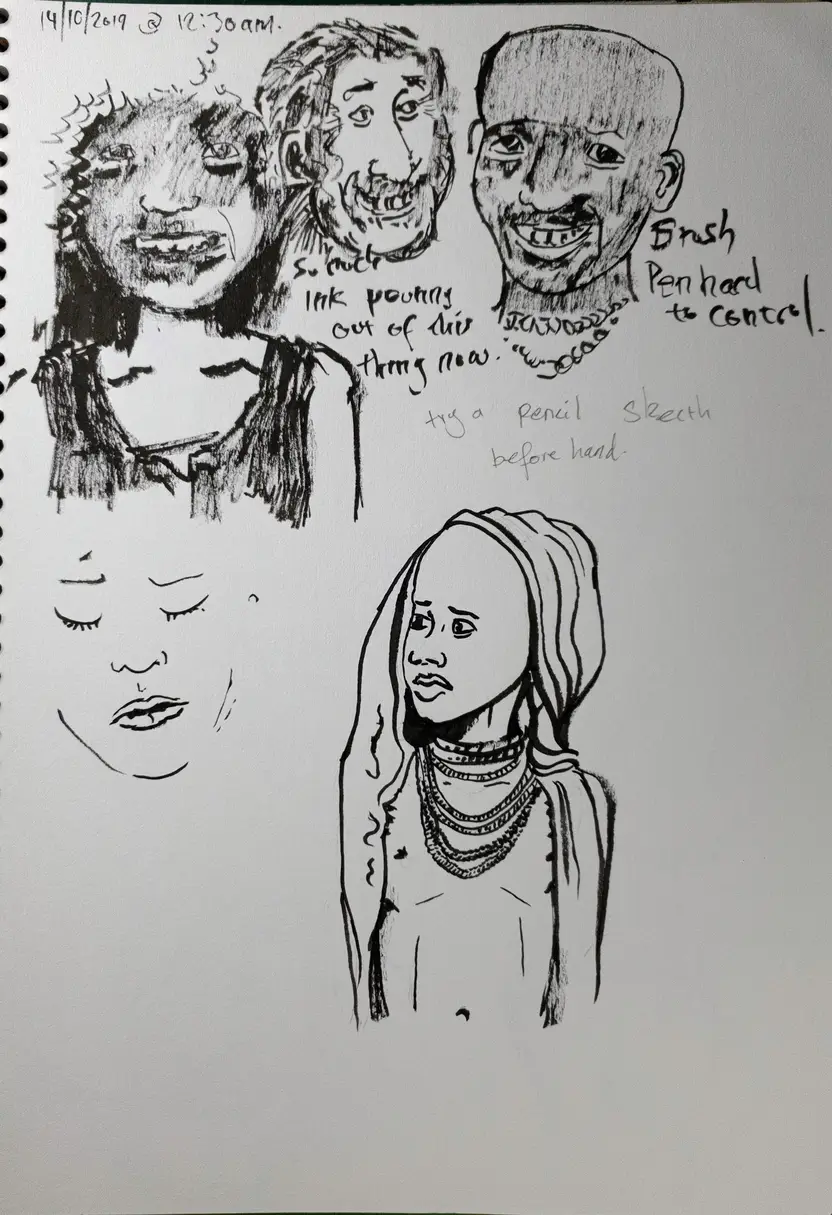 14/10/2019 @ 12:30am.
So much
Ink pouring
out of this
thing now.
Brush
Pen hard
to control.
try a pencil skecth
before hand.